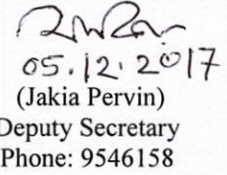 05.12.2017
(Jakia Pervin)
Deputy Secretary
Phone: 9546158